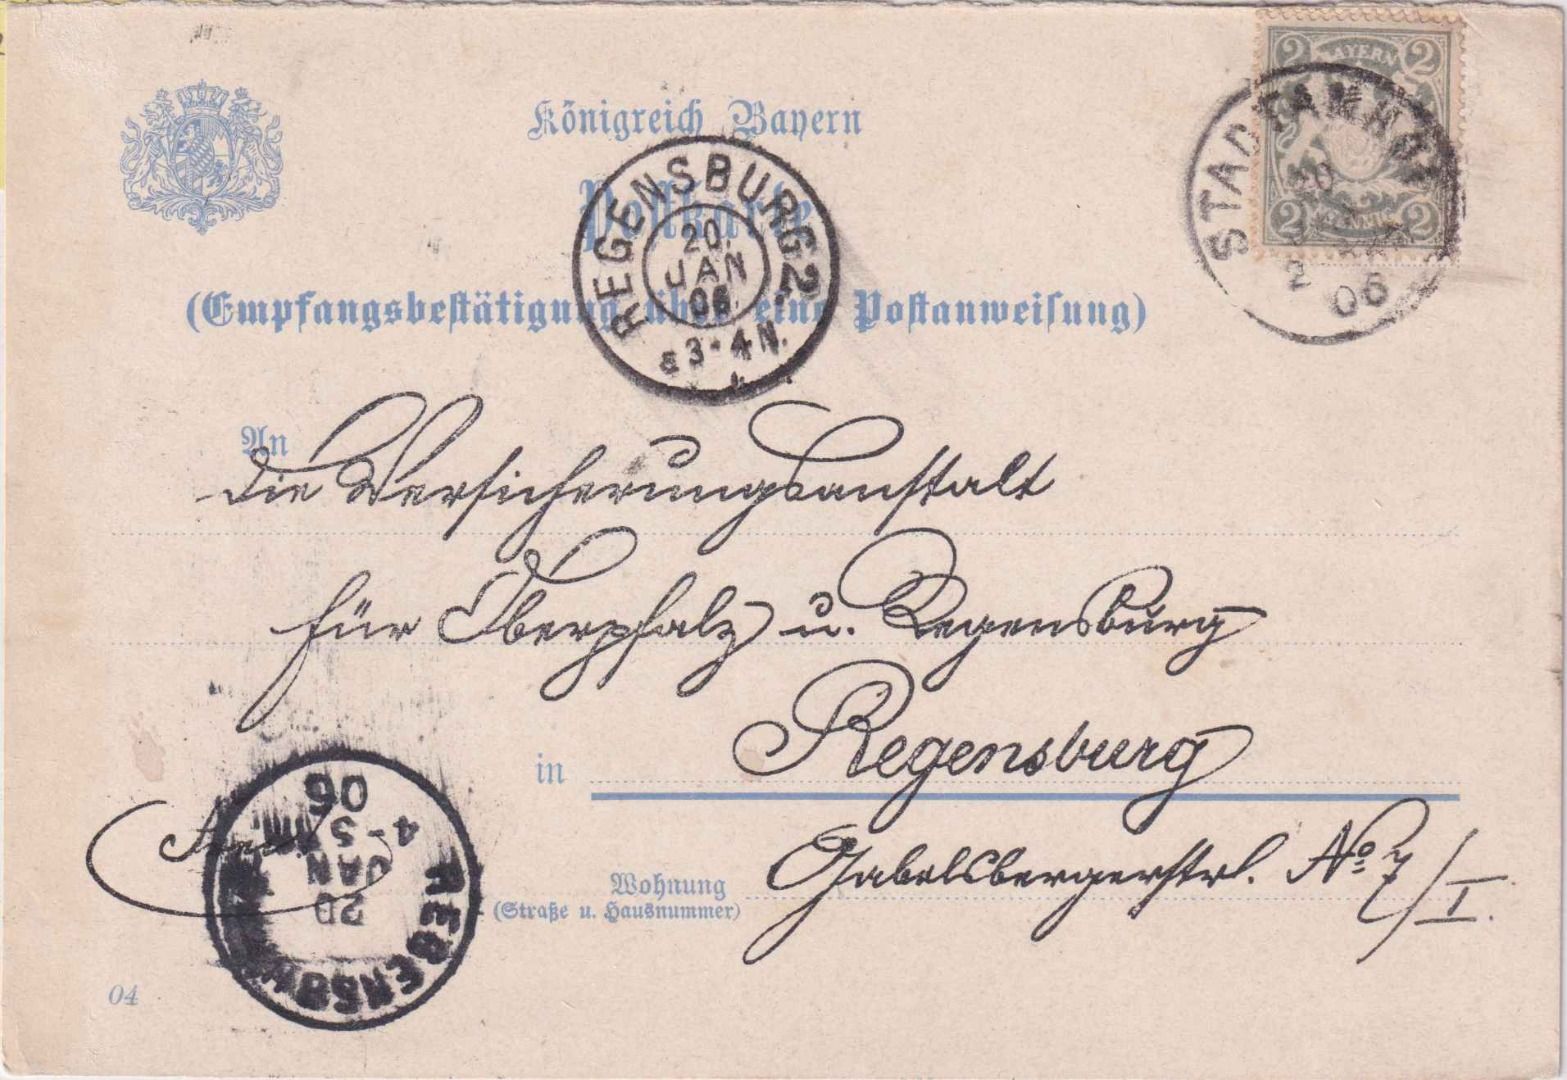 BAYERN
2 2
2 2
STADTAMHOF
20
2
06
Königreich Bayern
Postkarte
(Empfangsbestätigung über eine Postanweisung)
REGENSBURG 2
20.
JAN
06
3-4 N.
An
die Versicherungsanstalt
für Oberpfalz u. Regensburg
in Regensburg
Wohnung
(Straße u. Hausnummer)
Gabelsbergerstr. No 7/I.
REGENSBURG
20
JAN
4-5
06
04